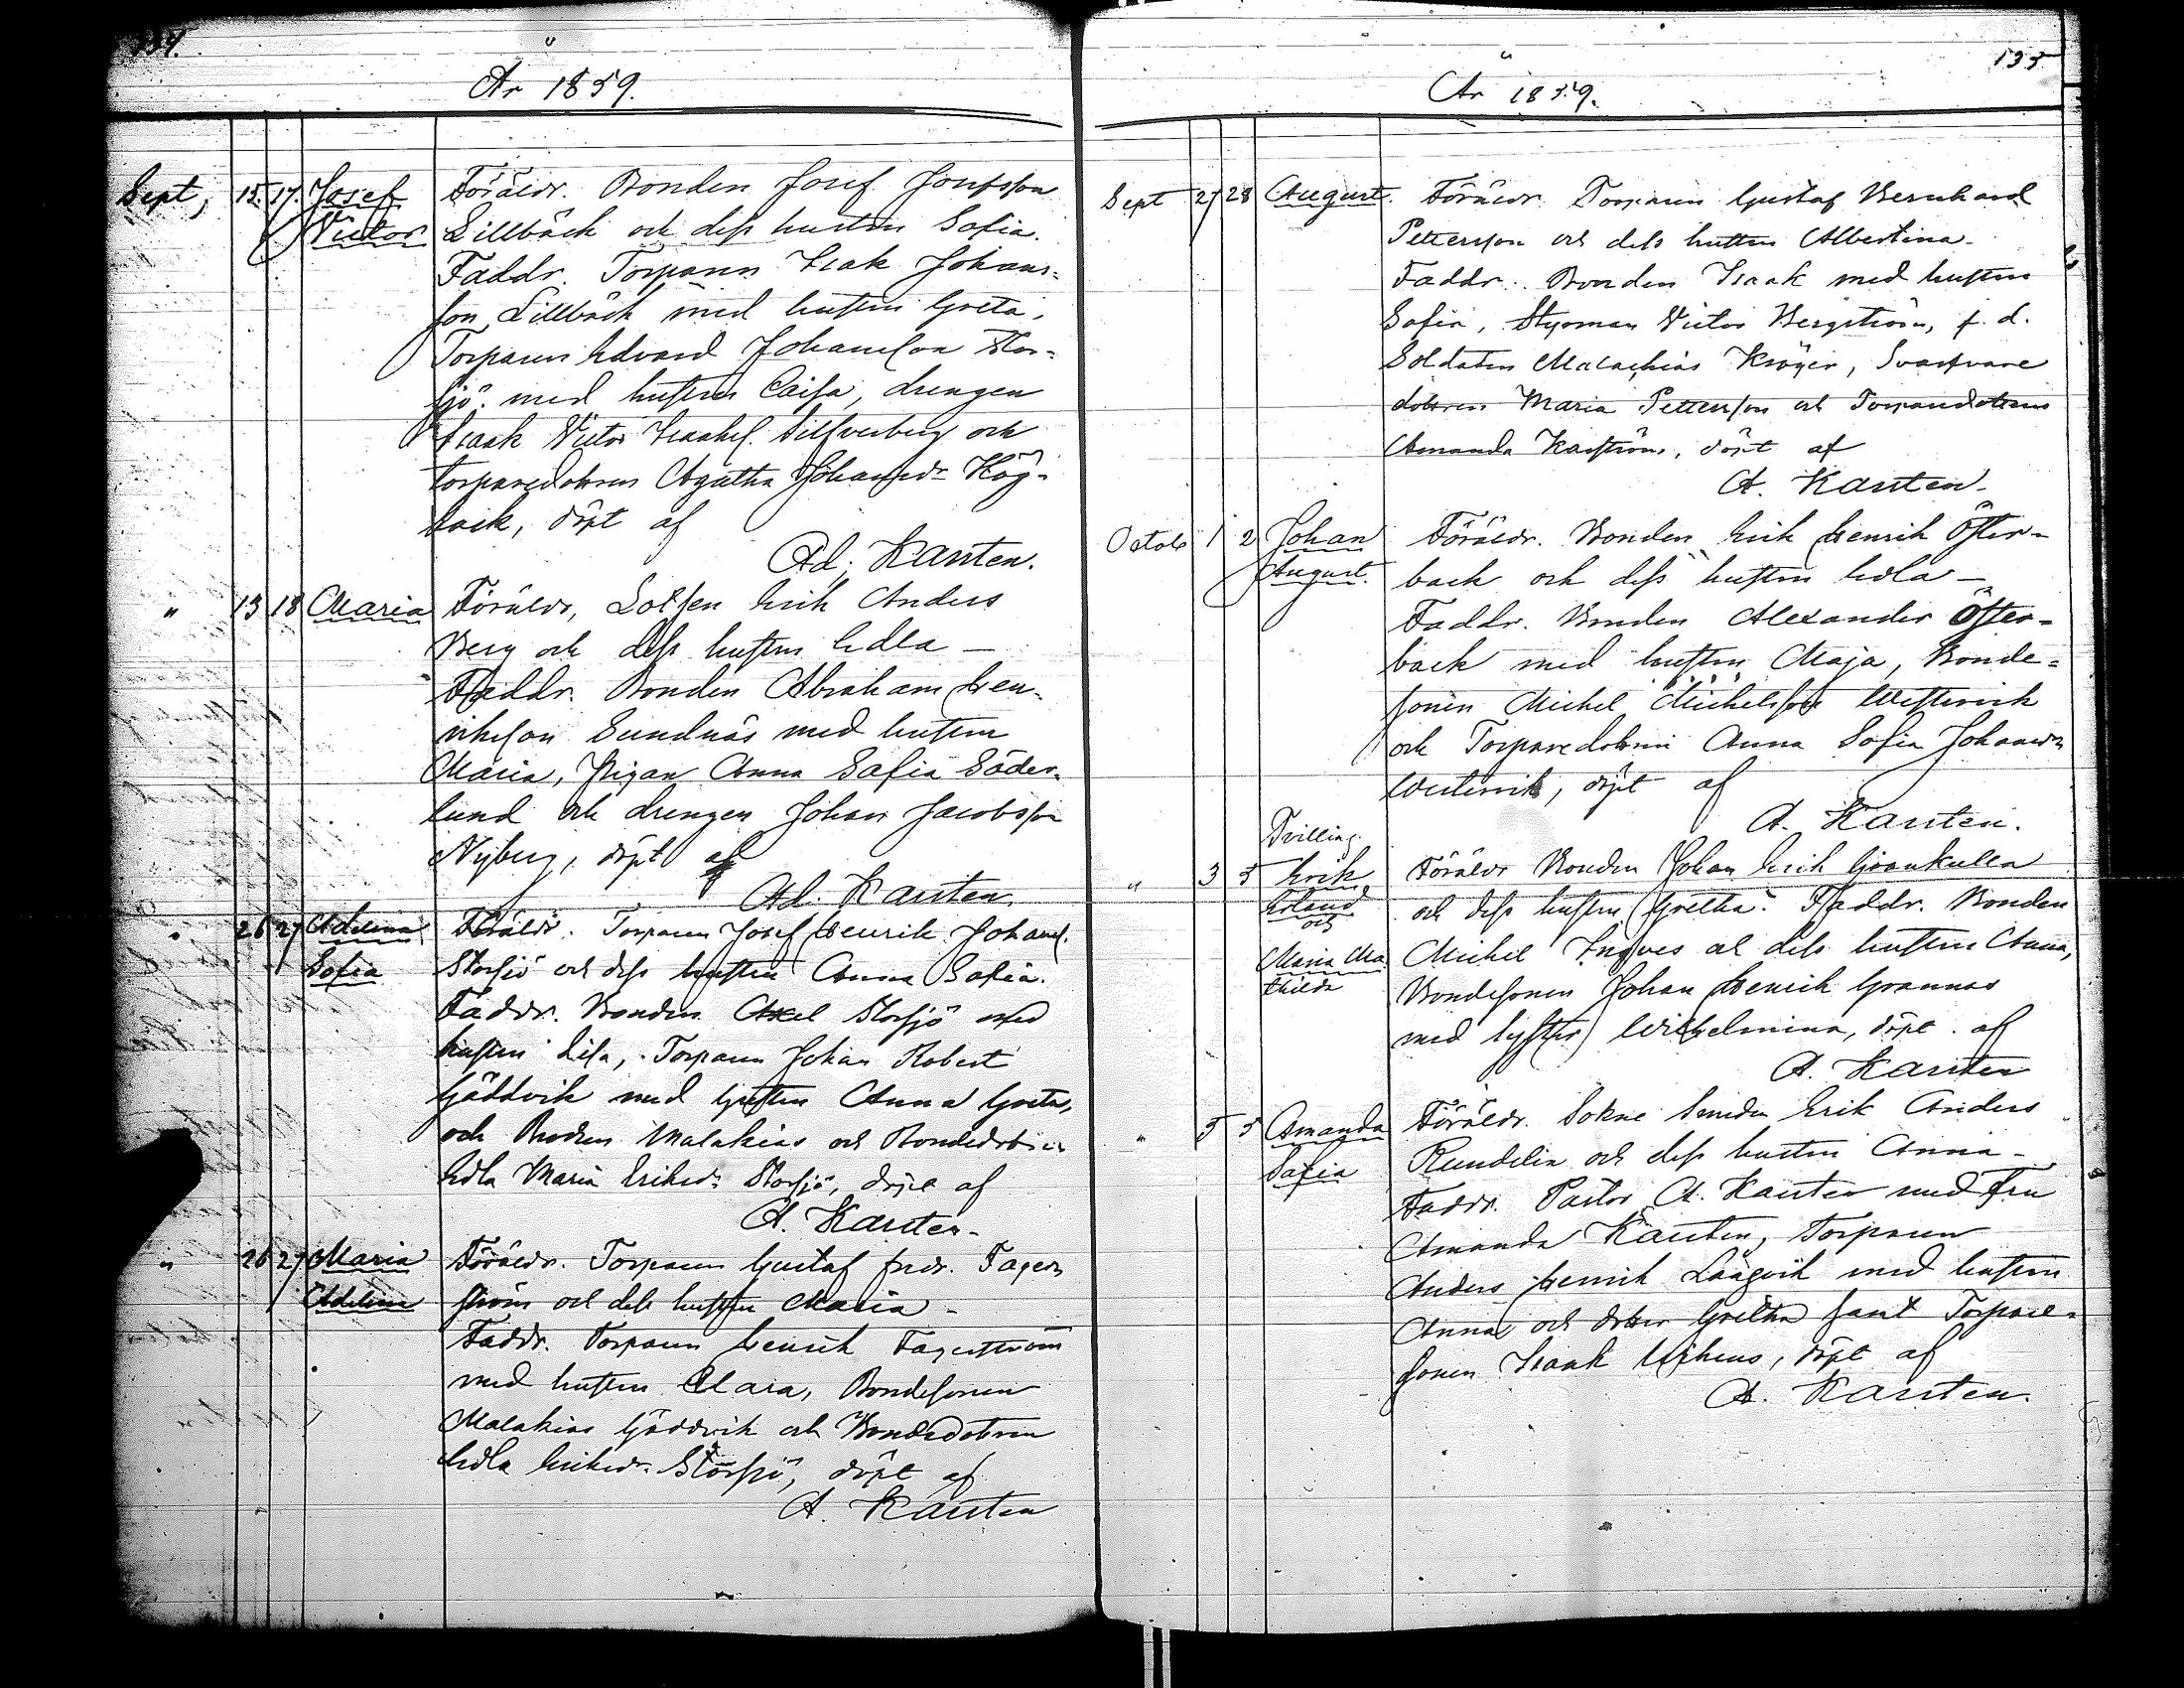 134.
År 1859.
Sept, 15. 17. Josef Victor
Föräldr. Bonden Josef Josefsson
Lillbäck och dess hustru Sofia.
Faddr. Torparen Isak Johans-
son Lillbäck med hustru Greta,
Torparen Edvard Johansson Stor-
sjö med hustru Caisa, drengen
Isaak Victor Isaaks. Silfverberg och
torparedottren Agatha Johansdr Hög-
back, döpt af
Ad. Karsten.
" 13 18 Maria
Föräldr, Lotsen Erik Anders
Berg och dess hustru Edla —
Faddr. Bonden Abraham Hen-
rikson Sundnäs med hustru
Maria, Pigan Anna Sofia Söder-
lund och drengen Johan Jacobsson
Nyberg, döpt af
Ad. Karsten.
" 26 27 Adelina Sofia
Föräldr. Torparen Josef Henrik Johans.
Storsjö och dess hustru Anna Sofia.
Faddr. Bonden Axel Storsjö med
hustru Lisa, Torparen Johan Robert
Gäddvik med hustru Anna Greta,
och Broder Malakias och Bondedottren
Edla Maria Eriksdr Storsjö, döpt af
A. Karsten.
" 26 27 Maria Adelina
Föräldr. Torparen Gustaf Fredr. Fager-
ström och dess hustru Maria -
Faddr. Torparen Henrik Fagerström
med hustru Clara, Bondesonen
Malakias Gäddvik och Bondedottren
Edla Eriksdr. Storsjö, döpt af
A. Karsten
135
År 1859.
Sept 27 28 August.
Föräldr. Torparen Gustaf Bernhard
Pettersson och dess hustru Albertina.
Faddr. Bonden Isaak med hustru
Sofia, Styrman Victor Bergström, f. d.
Soldaten Malachias Kröger,
dottren Maria Pettersson och Torparedottren
Amanda Karström, döpt af
A. Karsten.
Octob 1 2 Johan August.
Föräldr. Bonden Erik Henrik Öster-
back och dess hustru Edla —
Faddr. Bonden Alexander Öster-
back med hustru Maja, Bonde-
sonen Michel Michelsson Westervik
och Torparedottren Anna Sofia Johansdr
Westervik, döpt af
A. Karsten.
Tvilling.
" 3 5 Erik Erland och Maria Mathilda
Föräldr Bonden Johan Erik Grankulla
och dess hustru Gretha. Faddr. Bonden
Michel Ingves och dess hustru Anna,
Bondesonen Johan Henrik Grannas
med syster Wilhelmina, döpt af
A. Karsten
" 5 5 Amanda Sofia
Föräldr. Sokne Smeden Erik Anders
Rundelin och dess hustru Anna -
Faddr. Pastor A. Karsten med Fru
Amanda Karsten, Torparen
Anders Henrik Långvik med hustru
Anna och dotter Gretha samt Torpare-
sonen Isaak döpt af
A. Karsten.